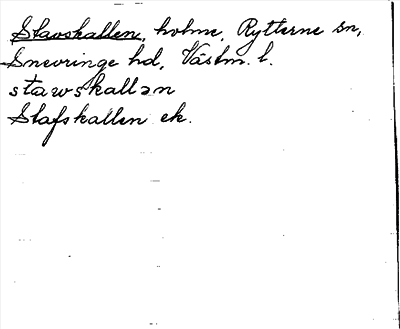 Slavskallen, holme, Rytterne sn,
Snevringe hd, Västm. l.
stawskallən
Slafskallen ek.